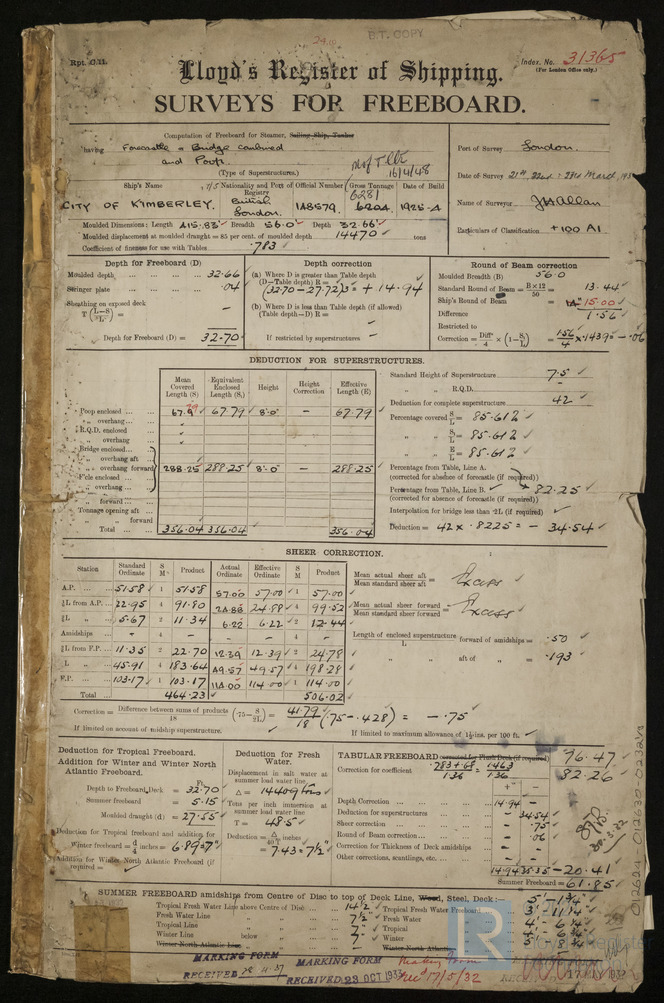 24.10
B.T. COPY
Rpt. C.11.
Index. No. 31365
(For London Office only.)
Lloyd's Register of Shipping.
SURVEYS FOR FREEBOARD.
Computation of Freeboard for Steamer, Sailing Ship, Tanker
having Forecastle & Bridge combined
and Poop.
(Type of Superstructures.)
16/4/48
Port of Survey London.
Date of Survey 21st, 22nd & 23rd March, 193
Name of Surveyor J H Allan
Particulars of Classification +100 A1
Ship's Name
Nationality and Port of Registry
Official Number
Gross Tonnage
Date of Build
CITY OF KIMBERLEY.
British London.
148579
6281
6204
1925-4
Moulded Dimensions: Length 415.83' Breadth 56.0' Depth 32.66'
Moulded displacement at moulded draught = 85 per cent. of moulded depth 14470 tons
Coefficient of fineness for use with Tables .783
Depth for Freeboard (D)
Moulded depth 32.66
Stringer plate .04
Sheathing on exposed deck
T (L-S / L) = -
Depth for Freeboard (D) = 32.70
Depth correction
(a) Where D is greater than Table depth
(D-Table depth) R =
(32.70 - 27.72) 3 = + 14.94
(b) Where D is less than Table depth (if allowed)
(Table depth-D) R =
If restricted by superstructures -
Round of Beam correction
Moulded Breadth (B) 56.0
Standard Round of Beam = B×12/50 = 13.44
Ship's Round of Beam = 15.00
Difference 1.56
Restricted to
Correction = Diff/4 × (1 - S₁/L) = 1.56/4 × .1439 = -.06
DEDUCTION FOR SUPERSTRUCTURES.
Mean Covered Length (S)
Equivalent Enclosed Length (S₁)
Height
Height Correction
Effective Length (E)
Poop enclosed 67.79 67.79 8'0" - 67.79
„ overhang
R.Q.D. enclosed
„ overhang
Bridge enclosed
„ overhang aft
„ overhang forward 288.25 288.25 8'0" - 288.25
F'cle enclosed
„ overhang
„ forward
Tonnage opening aft
„ forward
Total 356.04 356.04 356.04
Standard Height of Superstructure 7.5
„ „ R.Q.D. -
Deduction for complete superstructure 42
Percentage covered S/L = 85.612
„ S₁/L = 85.612
„ E/L = 85.612
Percentage from Table, Line A.
(corrected for absence of forecastle (if required))
Percentage from Table, Line B. 82.25
(corrected for absence of forecastle (if required))
Interpolation for bridge less than ·2L (if required)
Deduction = 42 × .8225 = - 34.54
SHEER CORRECTION.
Station
Standard Ordinate
S M
Product
Actual Ordinate
Effective Ordinate
S M
Product
A.P. 51.58 1 51.58 57.00 57.00 1 57.00
⅙L from A.P. 22.95 4 91.80 24.88 24.88 4 99.52
⅓L „ 5.67 2 11.34 6.22 6.22 2 12.44
Amidships - 4 - - - 4 -
⅓L from F.P. 11.35 2 22.70 12.39 12.39 2 24.78
⅙L „ 45.91 4 183.64 49.57 49.57 4 198.28
F.P. 103.17 1 103.17 114.00 114.00 1 114.00
Total 464.23 506.02
Mean actual sheer aft / Mean standard sheer aft = Excess
Mean actual sheer forward / Mean standard sheer forward = Excess
Length of enclosed superstructure / L forward of amidships = .50
„ „ aft of „ = .193
Correction = Difference between sums of products / 18 (·75 - S/2L) = 41.79/18 (.75 - .428) = -.75
If limited on account of midship superstructure.
If limited to maximum allowance of 1½ins. per 100 ft.
Deduction for Tropical Freeboard.
Addition for Winter and Winter North
Atlantic Freeboard.
Ft.
Depth to Freeboard Deck = 32.70
Summer freeboard = 5.15
Moulded draught (d) = 27.55
Deduction for Tropical freeboard and addition for
Winter freeboard = d/4 inches = 6.89 = 7"
Addition for Winter North Atlantic Freeboard (if
required) =
Deduction for Fresh
Water.
Displacement in salt water at
summer load water line
Δ = 14409 tons
Tons per inch immersion at
summer load water line
T = 48.5
Deduction = Δ/40T inches
= 7.43 = 7½"
TABULAR FREEBOARD corrected for Flush Deck (if required) 76.47
Correction for coefficient .783+.68/1.36 = 1.463/1.36 82.26
+ -
Depth Correction 14.94 -
Deduction for superstructures 34.54
Sheer correction .75
Round of Beam correction .06
Correction for Thickness of Deck amidships
Other corrections, scantlings, etc.
14.94 35.35 -20.41
Summer Freeboard = 61.85
012624 012630 0232
SUMMER FREEBOARD amidships from Centre of Disc to top of Deck Line, Wood, Steel, Deck:- 5'-1¾"
Tropical Fresh Water Line above Centre of Disc 14½ Tropical Fresh Water Freeboard 3'-11¼"
Fresh Water Line „ „ 7½" Fresh Water „ 4'-6¼"
Tropical Line „ „ 7" Tropical „ 4'-6¾"
Winter Line below „ 7" Winter „ 5'-8¾"
Winter North Atlantic Line „ Winter North Atlantic
MARKING FORM
RECEIVED 28.11.37
MARKING FORM
RECEIVED 23 OCT 1933
Making Form
Rec'd 17/5/32